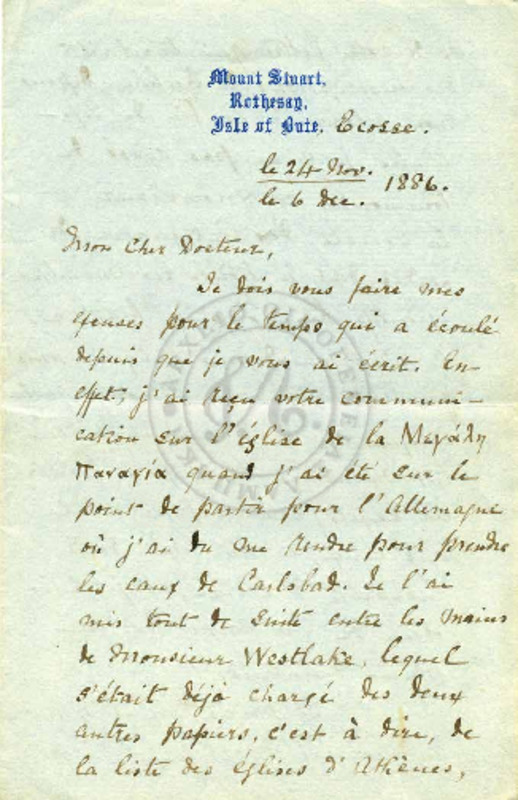 Mount Stuart,
Rothesay,
Isle of Bute, Ecosse.
le 24 Nov.
le 6 Dec. 1886.
Mon Cher Docteur,
Je dois vous faire mes
exuses pour le temps qui a écoulé
depuis que je vous ai écrit. En-
effet, j'ai reçu votre communi-
cation sur l'église de la Μεγάλη
Παναγία quand j'ai été sur le
point de partir pour l'Allemagne
où j'ai du me rendre pour prendre
les eaux de Carlsbad. Je l'ai
mis tout de suite entre les mains
de Monsieur Westlake, lequel
s'était déjà chargé des deux
autres papiers, c'est à dire, de
la liste des églises d'Athènes,